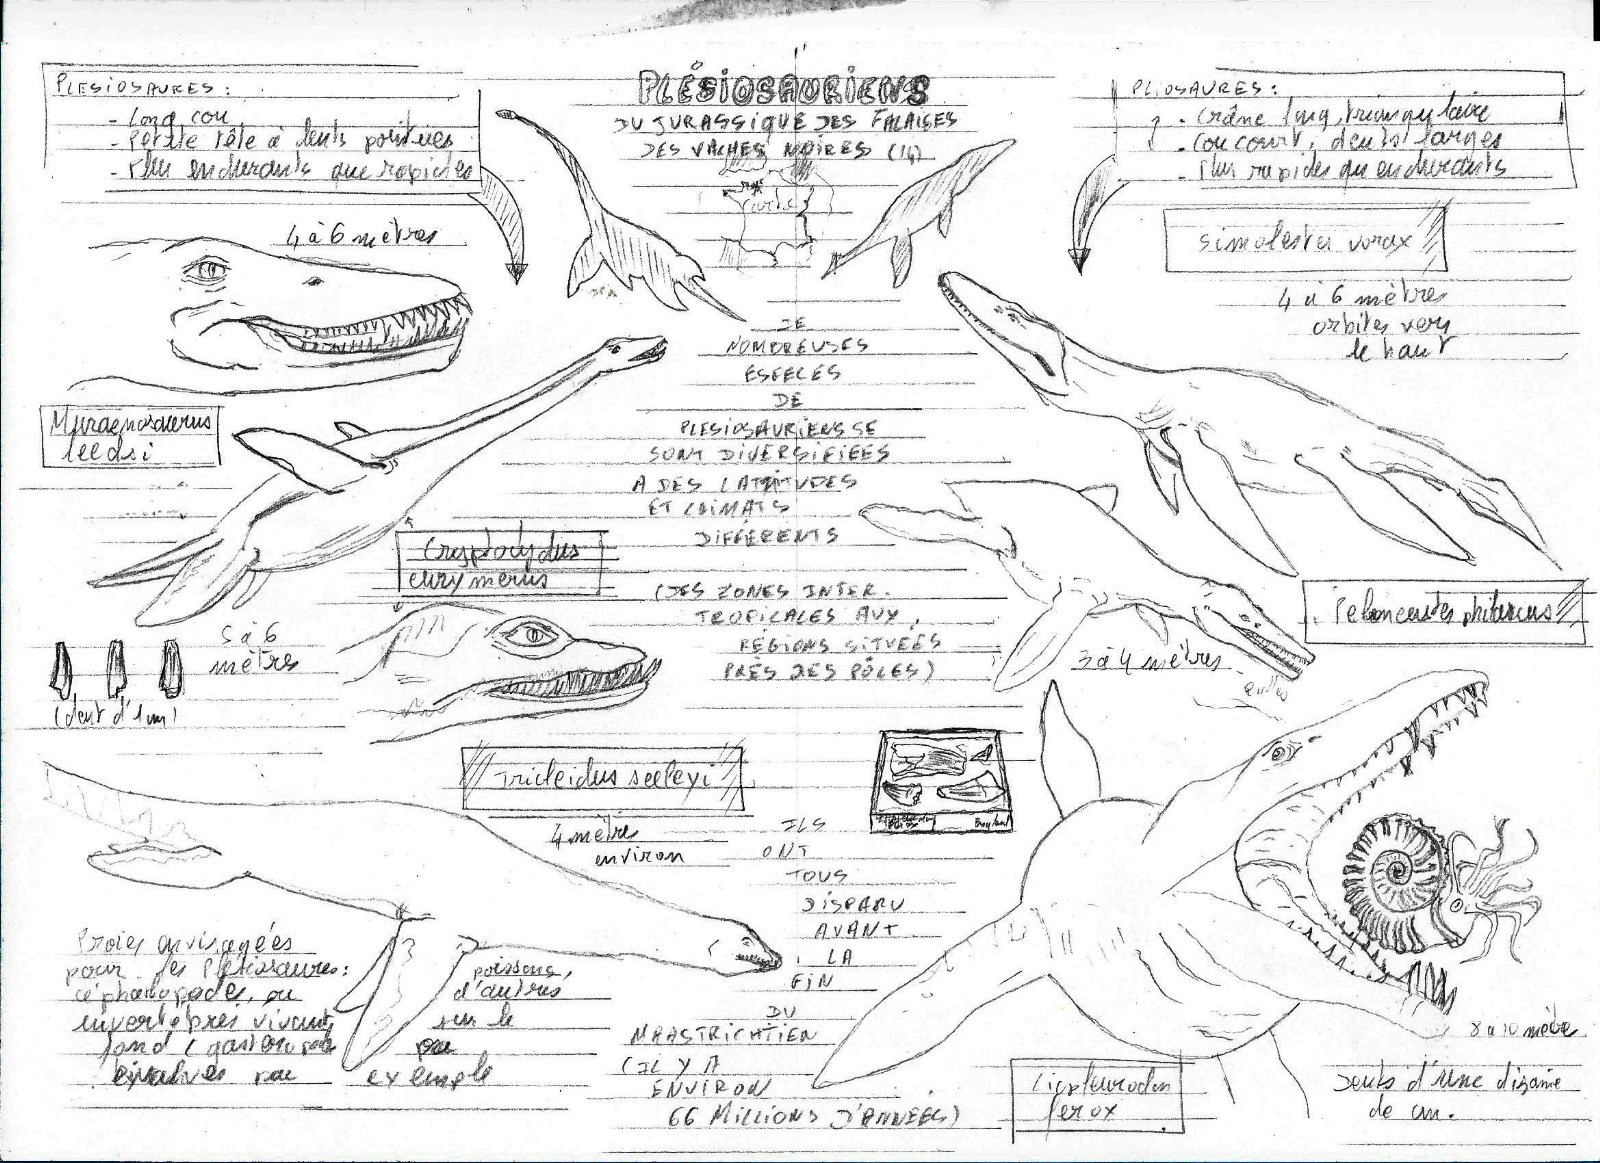 PLESIOSAURES :
- Long cou
- Petite tête à dents pointues
- Plus endurants que rapides
PLÉSIOSAURIENS
DU JURASSIQUE DES FALAISES
DES VACHES NOIRES (14)
PLIOSAURES :
- Crâne long, triangulaire
- Cou court, dents larges
- Plus rapides qu'endurants
4 à 6 mètres
Simolestes vorax
4 à 6 mètres
orbites vers
le haut
Muraenosaurus
leedsi
DE
NOMBREUSES
ESPÈCES
DE
PLESIOSAURIENS SE
SONT DIVERSIFIÉES
A DES LATITUDES
ET CLIMATS
DIFFÉRENTS
(DES ZONES INTER.
TROPICALES AUX
RÉGIONS SITUÉES
PRÈS DES PÔLES)
Cryptoclydus
eurymerus
5 à 6
mètres
(dent d'1 cm)
Peloneustes philarcus
3 à 4 mètres
Tricleidus seeleyi
4 mètres
environ
ILS
ONT
TOUS
DISPARU
AVANT
LA
FIN
DU
MAASTRICHTIEN
(IL Y A
ENVIRON
66 MILLIONS D'ANNÉES)
Proies envisagées
pour les Plésiosaures :
céphalopode, ou poissons,
d'autres
invertébrés vivants sur le
fond (gastéropode ou
bivalves par exemple
8 à 10 mètre
Liopleurodon
ferox
Dents d'une dizaine
de cm.